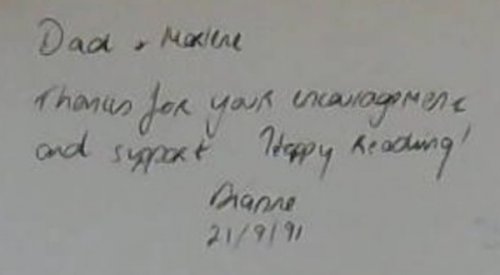 Dad & Marlene
Thanks for your encouragement
and support Happy Reading!
Dianne
21/9/91